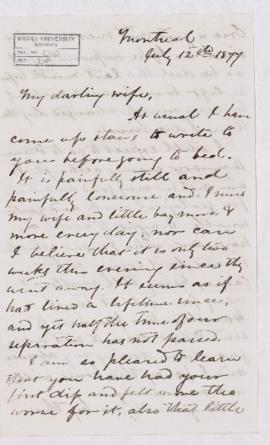 McGILL UNIVERSITY
ARCHIVES
ACC. NO.
REF.
Montreal
July 12th 1877
My darling wife,
As usual I have
come up stairs to write to
you before going to bed.
It is painfully still and
painfully lonesome and I miss
my wife and little bay more &
more every day; nor can
I believe that it is only two
weeks this evening since they
went away. It seems as if
I had lived a lifetime since,
and yet half the time of our
separation has not passed.
I am so pleased to learn
that you have had your
first dip and felt none the
worse for it, also that little